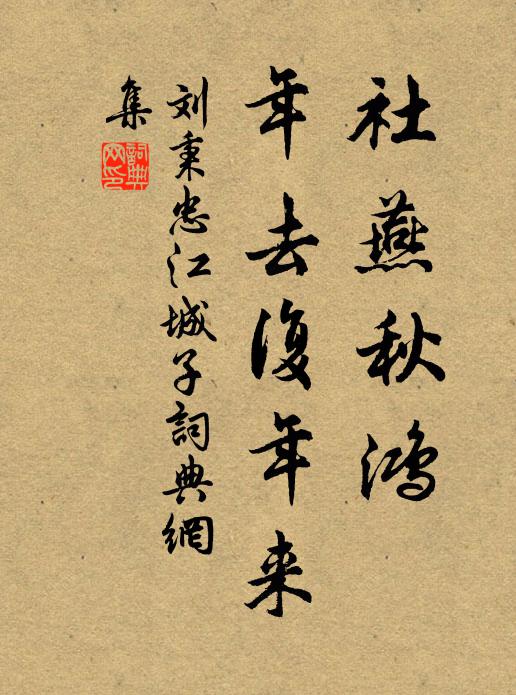 社燕秋鸿
年去復年来
刘秉忠江城子詞典網
集
詞典網印